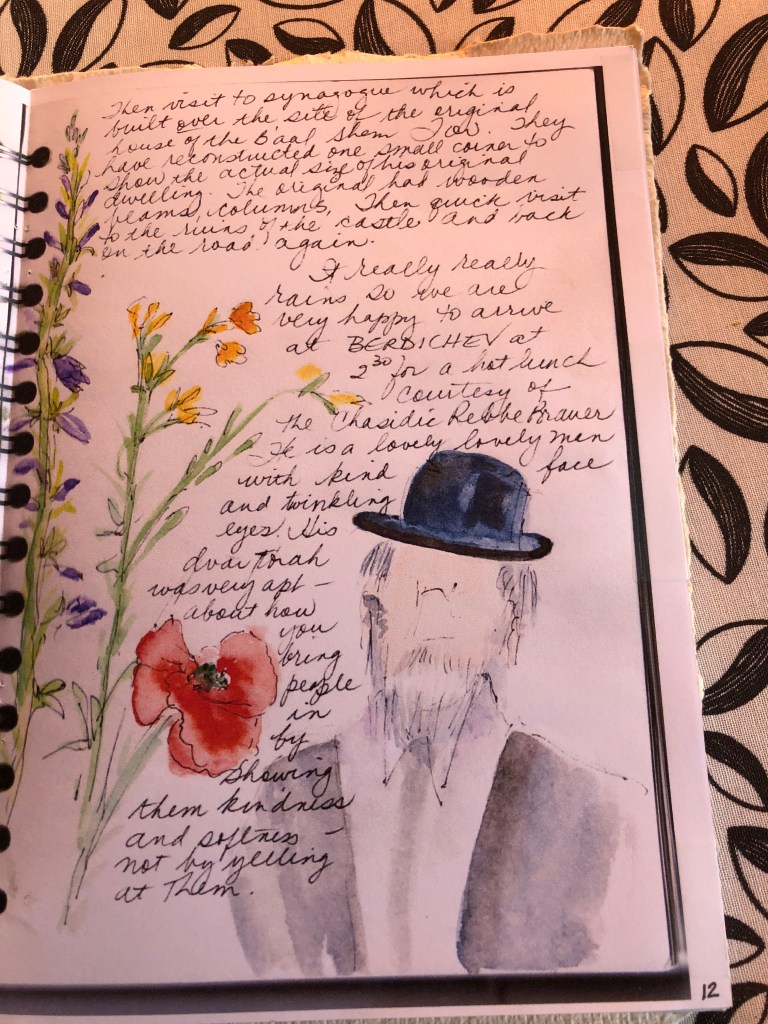 Then visit to synagogue which is
built over the site of the original
house of the B'aal Shem Tov. They
have reconstructed one small corner to
show the actual size of his original
dwelling. The original had wooden
beams, columns, Then quick visit
to the ruins of the castle and back
on the road again.
It really really
rains so we are
very happy to arrive
at BERDICHEV at
2³⁰ for a hot lunch
courtesy of
the Chasidic Rebbe Brauer
He is a lovely lovely man
with kind face
and twinkling
eyes! His
dvar torah
was very apt —
about how
you
bring
people
in
by
showing
them kindness
and softness —
not by yelling
at them.
12